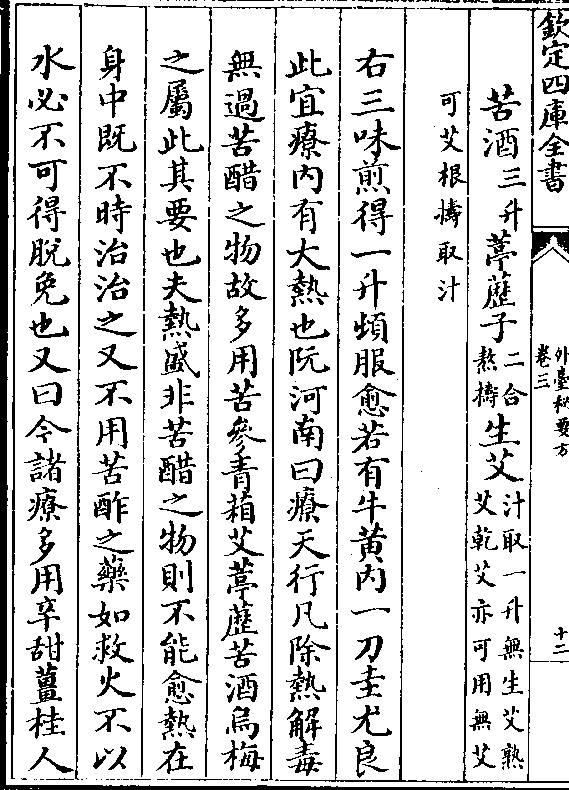 欽定四庫全書
外臺秘要方
卷三
十二
苦酒三升葶藶子二合熬擣生艾汁取一升無生艾熟艾乾艾亦可用無艾
可艾根擣取汁
右三味煎得一升頓服愈若有牛黄内一刀圭尤良
此宜療内有大熱也阮河南曰療天行凡除熱解毒
無過苦醋之物故多用苦參青葙艾葶藶苦酒烏梅
之屬此其要也夫熱盛非苦醋之物則不能愈熱在
身中既不時治治之又不用苦酢之藥如救火不以
水必不可得脱免也又曰今諸療多用辛甜薑桂人